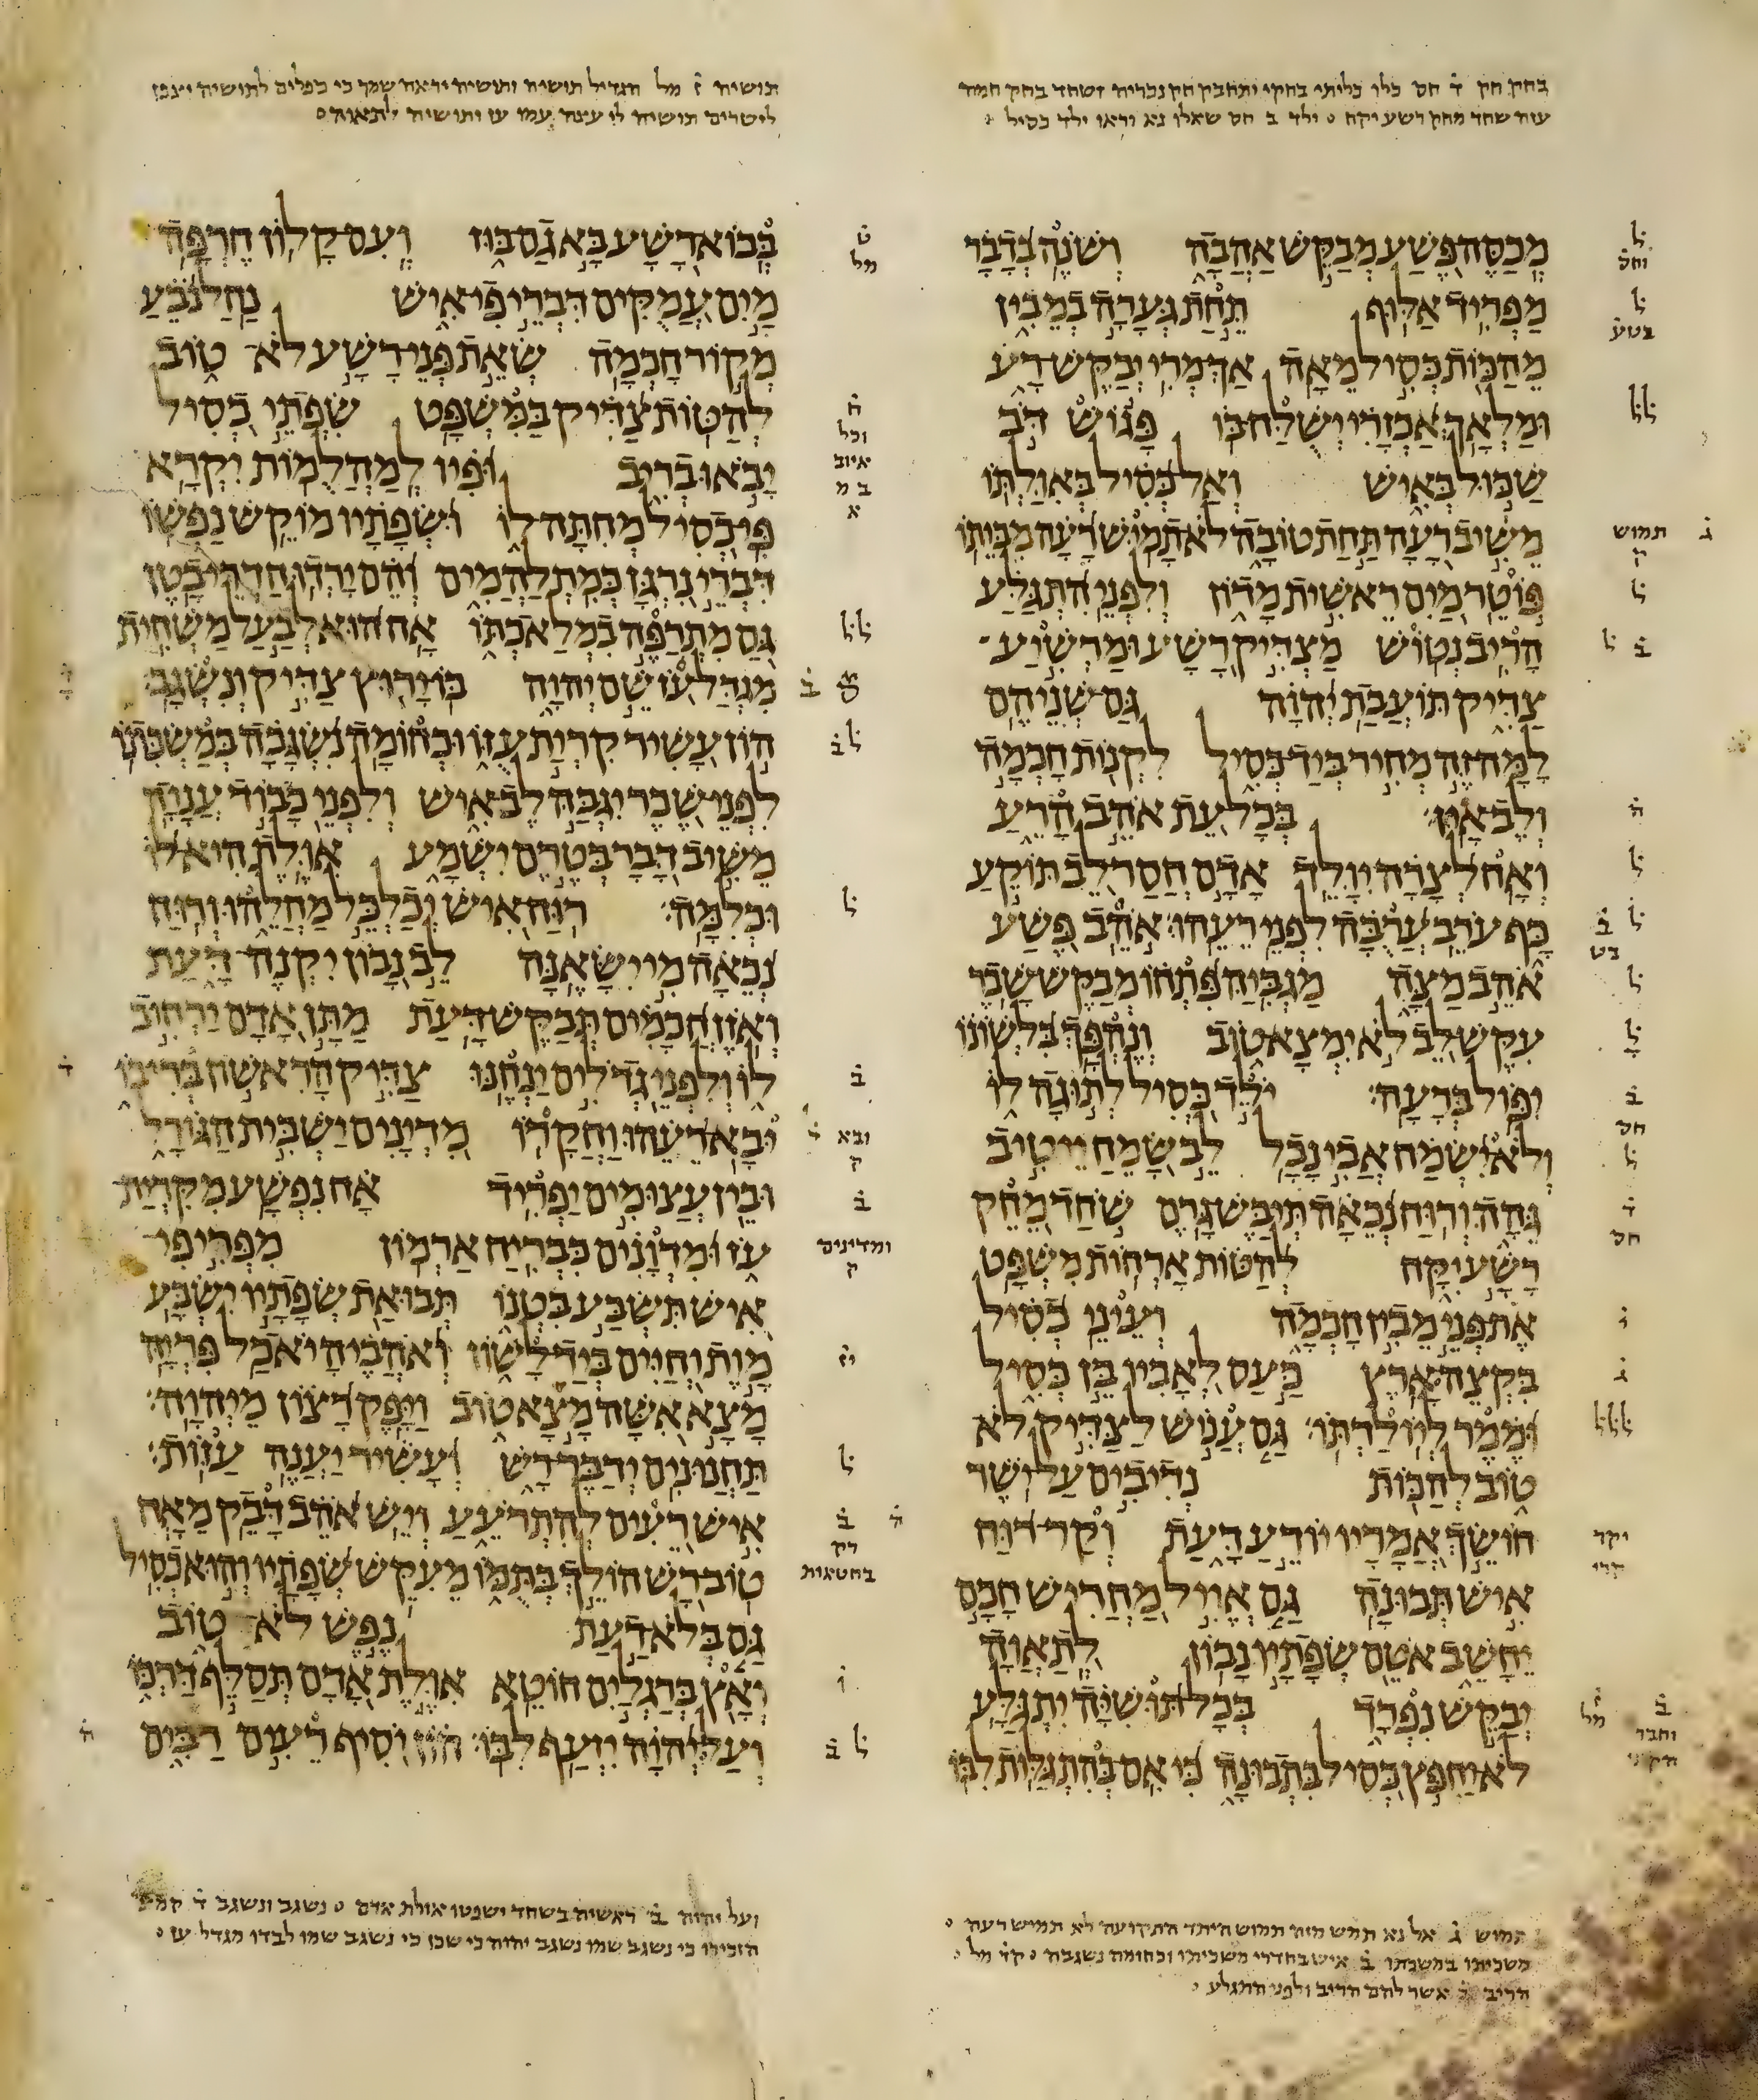 בחק חק ד̇ חס כלו כליתי בחקי ותחבק חק נכריה ושחד בחק חמה
עזה שחד מחק רשע יקח ◦ ילד ב חס שאלו נא וראו ילד כסיל ◦
מְכַסֶּה פֶּשַׁע מְבַקֵּשׁ אַהֲבָה וְשֹׁנֶה בְדָבָר
מַפְרִיד אַלּוּף תֵּחַת גְּעָרָה בְמֵבִין
מֵהַכּוֹת כְּסִיל מֵאָה אַךְ מְרִי יְבַקֶּשׁ רָע
וּמַלְאָךְ אַכְזָרִי יְשֻׁלַּח בּוֹ פָּגוֹשׁ דֹּב
שַׁכּוּל בְּאִישׁ וְאַל כְּסִיל בְּאִוַּלְתּוֹ
מֵשִׁיב רָעָה תַּחַת טוֹבָה לֹא תָמִישׁ רָעָה מִבֵּיתוֹ
פּוֹטֵר מַיִם רֵאשִׁית מָדוֹן וְלִפְנֵי הִתְגַּלַּע
הָרִיב נְטוֹשׁ מַצְדִּיק רָשָׁע וּמַרְשִׁיעַ
צַדִּיק תּוֹעֲבַת יְהוָה גַּם שְׁנֵיהֶם
לָמָּה זֶּה מְחִיר בְּיַד כְּסִיל לִקְנוֹת חָכְמָה
וְלֶב אָיִן׃ בְּכָל עֵת אֹהֵב הָרֵעַ
וְאָח לְצָרָה יִוָּלֵד אָדָם חֲסַר לֵב תּוֹקֵעַ
כָּף עֹרֵב עֲרֻבָּה לִפְנֵי רֵעֵהוּ׃ אֹהֵב פֶּשַׁע
אֹהֵב מַצָּה מַגְבִּיהַּ פִּתְחוֹ מְבַקֶּשׁ שָׁבֶר
עִקֶּשׁ לֵב לֹא יִמְצָא טוֹב וְנֶהְפָּךְ בִּלְשׁוֹנוֹ
יִפּוֹל בְּרָעָה׃ יֹלֵד כְּסִיל לְתוּגָה לוֹ
וְלֹא יִשְׂמַח אֲבִי נָבָל לֵב שָׂמֵחַ יֵיטִיב
גֵּהָה וְרוּחַ נְכֵאָה תְּיַבֶּשׁ גָּרֶם שֹׁחַד מֵחֵק
רָשָׁע יִקָּח לְהַטּוֹת אָרְחוֹת מִשְׁפָּט
אֶת פְּנֵי מֵבִין חָכְמָה וְעֵינֵי כְסִיל
בִּקְצֵה אָרֶץ כַּעַס לְאָבִיו בֵּן כְּסִיל
וּמֶמֶר לְיוֹלַדְתּוֹ׃ גַּם עֲנוֹשׁ לַצַּדִּיק לֹא
טוֹב לְהַכּוֹת נְדִיבִים עַל יֹשֶׁר
חוֹשֵׂךְ אֲמָרָיו יוֹדֵעַ דָּעַת וְקַר רוּחַ
אִישׁ תְּבוּנָה גַּם אֱוִיל מַחֲרִישׁ חָכָם
יֵחָשֵׁב אֹטֵם שְׂפָתָיו נָבוֹן לְתַאֲוָה
יְבַקֵּשׁ נִפְרָד בְּכָל תּוּשִׁיָּה יִתְגַּלָּע
לֹא יַחְפֹּץ כְּסִיל בִּתְבוּנָה כִּי אִם בְּהִתְגַּלּוֹת לִבּוֹ
תמוש ג̇ אל נא תמש מזה תמוש היתד התקועה לא תמיש רעה ◦
משכיתו במשכתו ב̇ איש בחדרי משכיתו וכחומה נשגבה ◦
הריב אשר להם הריב ולפני התגלע ◦
תושיה ז̇ מל הגדיל תושיה ותושיה יראה שמך כי כפלים לתושיה יצפן
לישרים תושיה לי עצה עמו עז ותושיה לתאוה ◦
בְּבוֹא רָשָׁע בָּא גַם בּוּז וְעִם קָלוֹן חֶרְפָּה
מַיִם עֲמֻקִּים דִּבְרֵי פִי אִישׁ נַחַל נֹבֵעַ
מְקוֹר חָכְמָה שְׂאֵת פְּנֵי רָשָׁע לֹא טוֹב
לְהַטּוֹת צַדִּיק בַּמִּשְׁפָּט שִׂפְתֵי כְסִיל
יָבֹאוּ בְרִיב וּפִיו לְמַהֲלֻמוֹת יִקְרָא
פִּי כְסִיל מְחִתָּה לוֹ וּשְׂפָתָיו מוֹקֵשׁ נַפְשׁוֹ
דִּבְרֵי נִרְגָּן כְּמִתְלַהֲמִים וְהֵם יָרְדוּ חַדְרֵי בָטֶן
גַּם מִתְרַפֶּה בִמְלַאכְתּוֹ אָח הוּא לְבַעַל מַשְׁחִית
מִגְדַּל עֹז שֵׁם יְהוָה בּוֹ יָרוּץ צַדִּיק וְנִשְׂגָּב׃
הוֹן עָשִׁיר קִרְיַת עֻזּוֹ וּכְחוֹמָה נִשְׂגָּבָה בְּמַשְׂכִּתוֹ
לִפְנֵי שֶׁבֶר יִגְבַּהּ לֶב אִישׁ וְלִפְנֵי כָבוֹד עֲנָוָה
מֵשִׁיב דָּבָר בְּטֶרֶם יִשְׁמָע אִוֶּלֶת הִיא לוֹ
וּכְלִמָּה׃ רוּחַ אִישׁ יְכַלְכֵּל מַחֲלֵהוּ וְרוּחַ
נְכֵאָה מִי יִשָּׂאֶנָּה לֵב נָבוֹן יִקְנֶה דָּעַת
וְאֹזֶן חֲכָמִים תְּבַקֶּשׁ דָּעַת מַתָּן אָדָם יַרְחִיב
לוֹ וְלִפְנֵי גְדֹלִים יַנְחֶנּוּ צַדִּיק הָרִאשׁוֹן בְּרִיבוֹ
יּבָא רֵעֵהוּ וַחֲקָרוֹ מִדְיָנִים יַשְׁבִּית הַגּוֹרָל
וּבֵין עֲצוּמִים יַפְרִיד אָח נִפְשָׁע מִקִּרְיַת
עֹז וּמִדְוָנִים כִּבְרִיחַ אַרְמוֹן מִפְּרִי פִי
אִישׁ תִּשְׂבַּע בִּטְנוֹ תְּבוּאַת שְׂפָתָיו יִשְׂבָּע
מָוֶת וְחַיִּים בְּיַד לָשׁוֹן וְאֹהֲבֶיהָ יֹאכַל פִּרְיָהּ
מָצָא אִשָּׁה מָצָא טוֹב וַיָּפֶק רָצוֹן מֵיְהוָה׃
תַּחֲנוּנִים יְדַבֶּר רָשׁ וְעָשִׁיר יַעֲנֶה עַזּוֹת׃
אִישׁ רֵעִים לְהִתְרֹעֵעַ וְיֵשׁ אֹהֵב דָּבֵק מֵאָח
טוֹב רָשׁ הוֹלֵךְ בְּתֻמּוֹ מֵעִקֵּשׁ שְׂפָתָיו וְהוּא כְסִיל
גַּם בְּלֹא דַעַת נֶפֶשׁ לֹא טוֹב
וְאָץ בְּרַגְלַיִם חוֹטֵא אִוֶּלֶת אָדָם תְּסַלֵּף דַּרְכּוֹ
וְעַל יְהוָה יִזְעַף לִבּוֹ׃ הוֹן יֹסִיף רֵעִים רַבִּים
ועל יהוה ב̇ ראשיה בשחד ישפטו אולת אדם ◦ נשגב ונשגב ד̇ קמצ
הזכירו כי נשגב שמו נשגב יהוה כי שכן כי נשגב שמו לבדו מגדל עז ◦